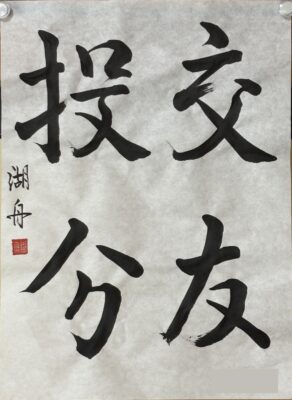 交友
投分
湖舟